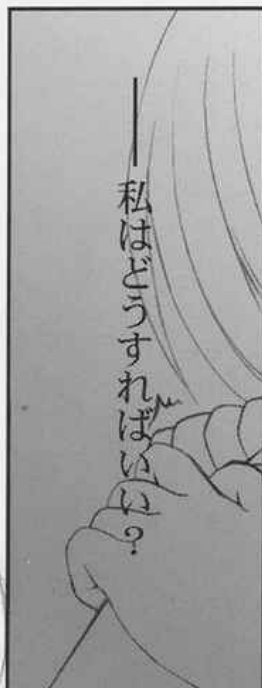 ――私はどうすればいい？